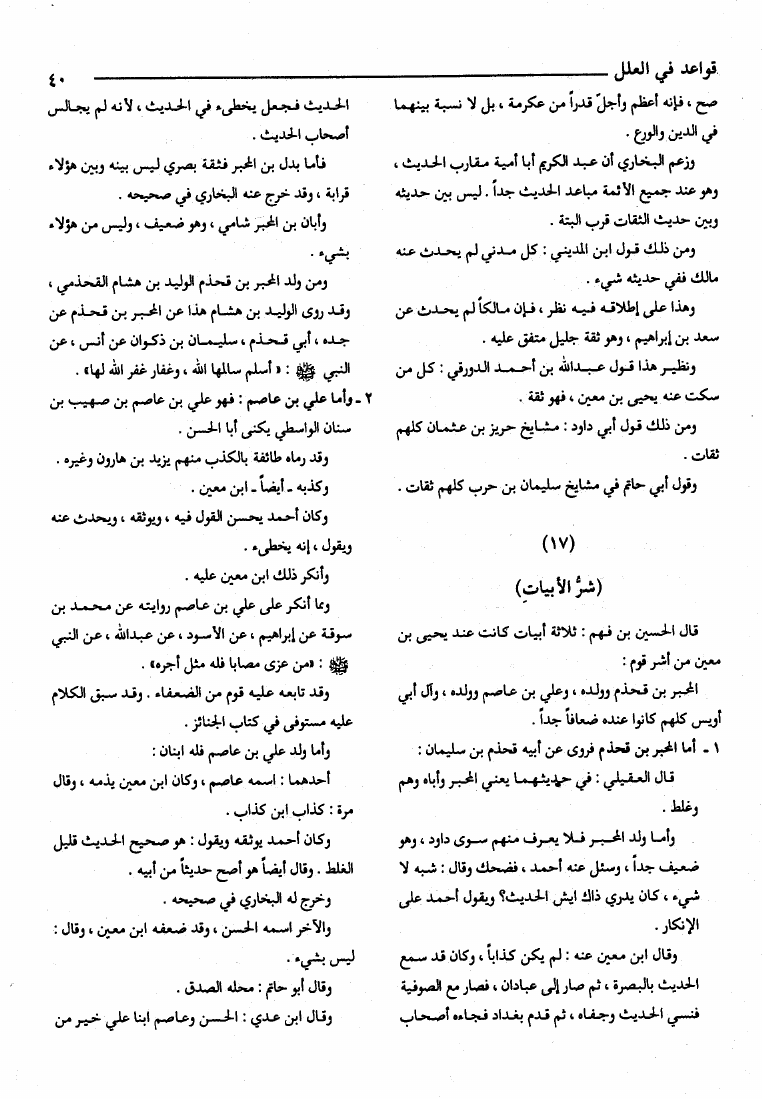 قواعد في العلل
٤٠
صح ، فإنه أعظم وأجلّ قدراً من عكرمة ، بل لا نسبة بينهما
في الدين والورع .
وزعم البخاري أن عبد الكريم أبا أمية مقارب الحديث ،
وهو عند جميع الأئمة مباعد الحديث جداً . ليس بين حديثه
وبين حديث الثقات قرب البتة .
ومن ذلك قول ابن المديني : كل مدني لم يحدث عنه
مالك ففي حديثه شيء .
وهذا على إطلاقه فيه نظر ، فإن مالكاً لم يحدث عن
سعد بن إبراهيم ، وهو ثقة جليل متفق عليه .
ونظير هذا قول عبدالله بن أحمد الدورقي : كل من
سكت عنه يحيى بن معين ، فهو ثقة .
ومن ذلك قول أبي داود : مشايخ حريز بن عثمان كلهم
ثقات .
وقول أبي حاتم في مشايخ سليمان بن حرب كلهم ثقات .
(١٧)
(شرُّ الأبياتِ)
قال الحسين بن فهم : ثلاثة أبيات كانت عند يحيى بن
معين من أشر قوم :
المحبر بن قحذم وولده ، وعلي بن عاصم وولده ، وآل أبي
أويس كلهم كانوا عنده ضعافاً جداً .
١ ـ أما المحبر بن قحذم فروى عن أبيه قحذم بن سليمان :
قال العقيلي : في حديثهما يعني المحبر وأباه وهم
وغلط .
وأما ولد المحبر فلا يعرف منهم سوى داود ، وهو
ضعيف جداً ، وسئل عنه أحمد ، فضحك وقال : شبه لا
شيء ، كان يدري ذاك ايش الحديث؟ ويقول أحمد على
الإنكار .
وقال ابن معين عنه : لم يكن كذاباً ، وكان قد سمع
الحديث بالبصرة ، ثم صار إلى عبادان ، فصار مع الصوفية
فنسي الحديث وجفاه ، ثم قدم بغداد فجاءه أصحاب
الحديث فجعل يخطىء في الحديث ، لأنه لم يجالس
أصحاب الحديث .
فأما بدل بن المحبر فثقة بصري ليس بينه وبين هؤلاء
قرابة ، وقد خرج عنه البخاري في صحيحه .
وأبان بن المحبر شامي ، وهو ضعيف ، وليس من هؤلاء
بشيء .
ومن ولد المحبر بن قحذم الوليد بن هشام القحذمي ،
وقد روى الوليد بن هشام هذا عن المحبر بن قحذم عن
جده ، أبي قحذم ، سليمان بن ذكوان عن أنس ، عن
النبي ﷺ : « أسلم سالمها الله ، وغفار غفر الله لها» .
٢ ـ وأما علي بن عاصم : فهو علي بن عاصم بن صهيب بن
سنان الواسطي يكنى أبا الحسن .
وقد رماه طائفة بالكذب منهم يزيد بن هارون وغيره .
وكذبه ـ أيضاً ـ ابن معين .
وكان أحمد يحسن القول فيه ، ويوثقه ، ويحدث عنه
ويقول ، إنه يخطىء .
وأنكر ذلك ابن معين عليه .
ومما أنكر على علي بن عاصم روايته عن محمد بن
سوقة عن إبراهيم ، عن الأسود ، عن عبدالله ، عن النبي
ﷺ : «من عزى مصابا فله مثل أجره» .
وقد تابعه عليه قوم من الضعفاء . وقد سبق الكلام
عليه مستوفى في كتاب الجنائز .
وأما ولد علي بن عاصم فله ابنان :
أحدهما : اسمه عاصم ، وكان ابن معين يذمه ، وقال
مرة : كذاب ابن كذاب .
وكان أحمد يوثقه ويقول : هو صحيح الحديث قليل
الغلط . وقال أيضاً هو أصح حديثاً من أبيه .
وخرج له البخاري في صحيحه .
والآخر اسمه الحسن ، وقد ضعفه ابن معين ، وقال :
ليس بشيء .
وقال أبو حاتم : محله الصدق .
وقال ابن عدي : الحسن وعاصم ابنا علي خير من